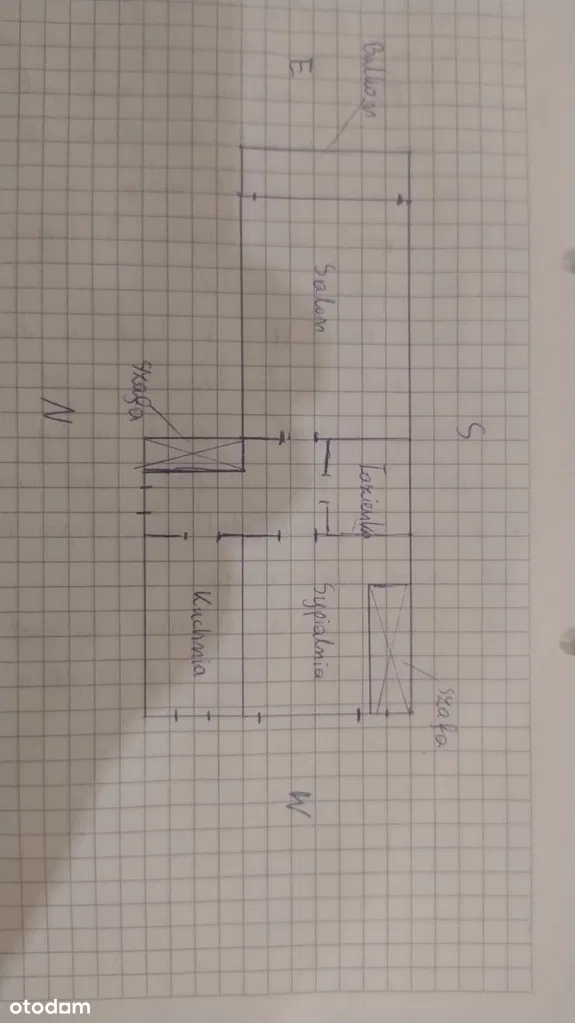 Balkon
E
Salon
szafa
N
S
Łazienka
Kuchnia
Sypialnia
szafa
W
otodom